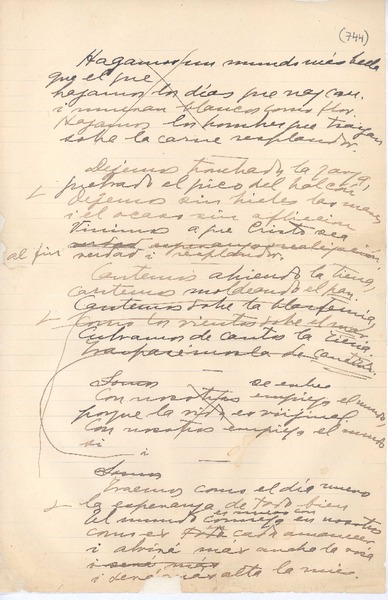 (744)
Hagamos un mundo más bello
que el que
hagamos los días que nazcan
i mueran blancos como flor.
Hagamos los hombres que traigan
sobre la carne resplandor.
Dejemos tronchado la garra,
quebrado el pico del halcón
dejemos sin hieles las mares
i el ocaso sin aflicción
Vinimos a que Cristo sea
al fin verdad i resplandor.
Cantemos abriendo la tierra,
cantemos moldeando el pan.
Cantemos sobre la blasfemia,
como los vientos sobre el mar.
Cubramos de cantos la tierra
traspasémosla de
Somos se entre
Con nosotros empieza el mundo,
porque la vida es virginal
Con nosotros empieza el mundo
si i
Somos
Traemos como el día nuevo
la esperanza de todo bien
el mundo comienza en nosotros
como en cada amanecer
i abrirá mas ancha la rosa
i será más
i será mas alta la mies.